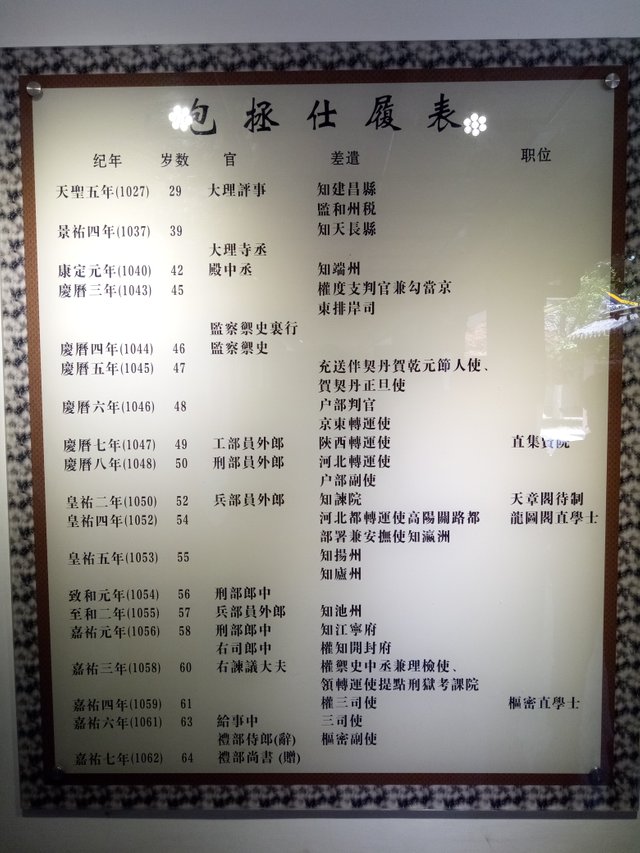 包拯仕履表
纪年 岁数 官 差遣 职位
天聖五年(1027) 29 大理評事 知建昌縣
監和州税
景祐四年(1037) 39 知天長縣
大理寺丞
康定元年(1040) 42 殿中丞 知端州
慶曆三年(1043) 45 權度支判官兼勾當京
東排岸司
監察禦史裏行
慶曆四年(1044) 46 監察禦史
慶曆五年(1045) 47 充送伴契丹賀乾元節人使、
賀契丹正旦使
慶曆六年(1046) 48 户部判官
京東轉運使
慶曆七年(1047) 49 工部員外郎 陝西轉運使 直集賢院
慶曆八年(1048) 50 刑部員外郎 河北轉運使
户部副使
皇祐二年(1050) 52 兵部員外郎 知諫院 天章閣待制
皇祐四年(1052) 54 河北都轉運使高陽關路都 龍圖閣直學士
部署兼安撫使知瀛洲
皇祐五年(1053) 55 知揚州
知廬州
致和元年(1054) 56 刑部郎中
至和二年(1055) 57 兵部員外郎 知池州
嘉祐元年(1056) 58 刑部郎中 知江寧府
右司郎中 權知開封府
嘉祐三年(1058) 60 右諫議大夫 權禦史中丞兼理檢使、
領轉運使提點刑獄考課院
嘉祐四年(1059) 61 權三司使 樞密直學士
嘉祐六年(1061) 63 給事中 三司使
禮部侍郎(辭) 樞密副使
嘉祐七年(1062) 64 禮部尚書(贈)